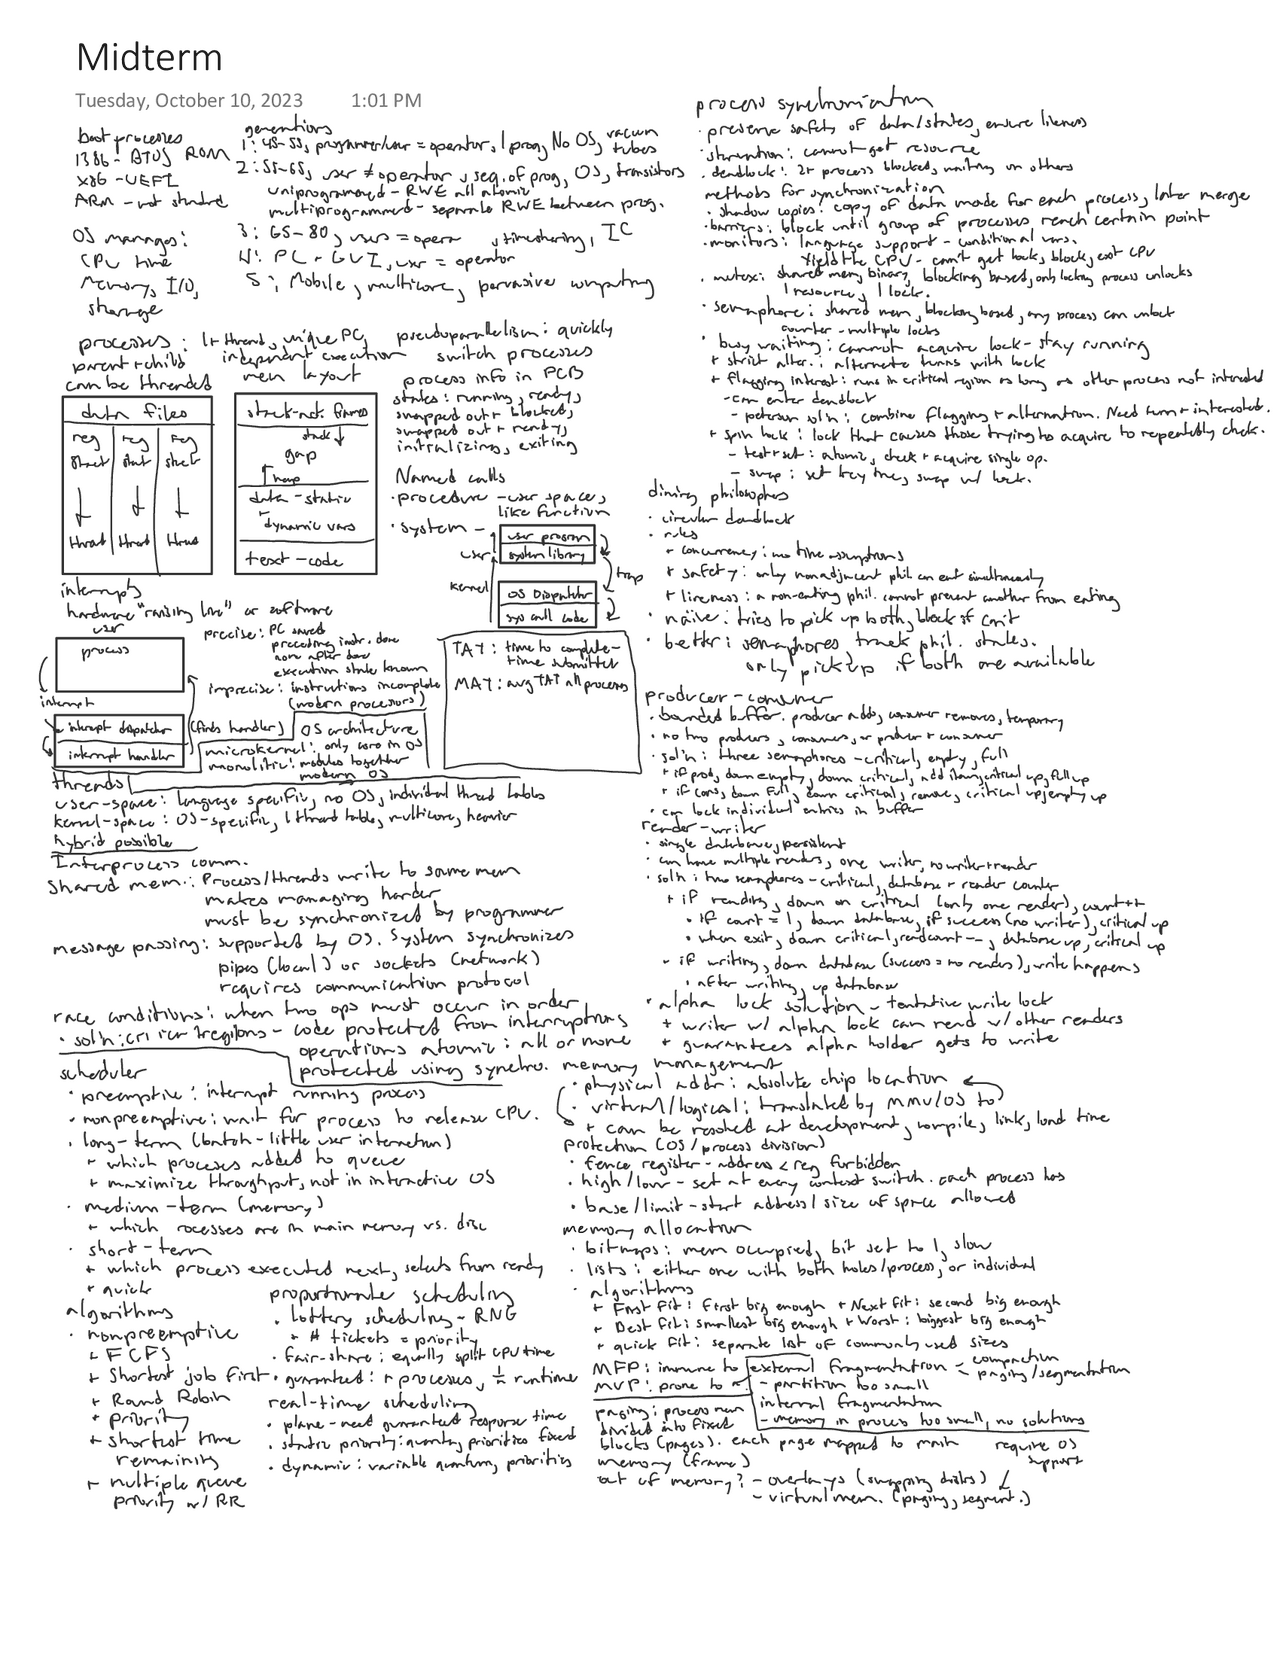 Midterm
Tuesday, October 10, 2023 1:01 PM
boot processes
1386 - BIOS ROM
x86 - UEFI
ARM - not standard
OS manages:
CPU time
Memory, I/O,
storage
generations
1: 45-55, programmer/user = operator, 1 prog, No OS, vacuum tubes
2: 55-65, user ≠ operator, seq. of prog, OS, transistors
uniprogrammed - RWE all atomic
multiprogrammed - separate RWE between prog.
3: 65-80, users = opera, timesharing, IC
4: PC + GUI, user = operator
5: Mobile, multicore, pervasive computing
processes: 1+ thread, unique PC,
parent + child independent execution
can be threaded
pseudoparallelism: quickly
switch processes
data files
reg reg reg
stack stack stack
thread thread thread
mem layout
stack-act. frames
stack ↓
gap
↑ heap
data - static
- dynamic vars
text - code
process info in PCB
states: running, ready,
swapped out + blocked,
swapped out + ready,
initializing, exiting
Named calls
· procedure - user space,
like function
· system -
user program
system library
user
kernel
trap
OS Dispatcher
sys call code
interrupts
hardware "raising line" or software
user
process
interrupt
interrupt dispatcher (finds handler)
interrupt handler
precise: PC saved
preceding instr. done
none after done
execution state known
imprecise: instructions incomplete
(modern processors)
OS architecture
microkernel: only core in OS
monolitic: modules together
modern OS
TAT: time to complete -
time submitted
MAT: avg TAT all processes
threads
user-space: language specific, no OS, individual thread tables
kernel-space: OS-specific, 1 thread table, multicore, heavier
hybrid possible
Interprocess comm.
shared mem.: Process/threads write to same mem
makes managing harder
must be synchronized by programmer
message passing: supported by OS. System synchronizes
pipes (local) or sockets (network)
requires communication protocol
race conditions: when two ops must occur in order
· sol'n: critical regions - code protected from interruptions
operations atomic: all or none
protected using synchro.
scheduler
· preemptive: interrupt running process
· nonpreemptive: wait for process to release CPU.
· long-term (batch - little user interaction)
+ which processes added to queue
+ maximize throughput, not in interactive OS
· medium-term (memory)
+ which rocesses are in main memory vs. disc
· short-term
+ which process executed next, selects from ready
+ quick
algorithms
· nonpreemptive
+ FCFS
+ Shortest job first
+ Round Robin
+ priority
+ shortest time
remaining
+ multiple queue
priority w/ RR
proportionate scheduling
· Lottery scheduling - RNG
+ # tickets = priority
· fair-share: equally split CPU time
· guaranteed: n processes, 1/n runtime
real-time scheduling
· plane - need guaranteed response time
· static priority: quanta, priorities fixed
· dynamic: variable quantum, priorities
process synchronization
· preserve safety of data/states, ensure liveness
· starvation: cannot get resource
· deadlock: 2+ process blocked, waiting on others
methods for synchronization
· shadow copies: copy of data made for each process, later merge
· barriers: block until group of processes reach certain point
· monitors: language support - conditional vars.
Yield the CPU - can't get lock, block, exit CPU
· mutex: shared mem, binary, blocking based, only locking process unlocks
1 resource, 1 lock.
· semaphore: shared mem, blocking based, any process can unlock
counter - multiple locks
· busy waiting: cannot acquire lock - stay running
+ strict alter.: alternate turns with lock
+ flagging interest: runs in critical region as long as other process not interested
- can enter deadlock
- peterson sol'n: combine flagging + alternation. Need turn + interested.
+ spin lock: lock that causes those trying to acquire to repeatedly check.
- test+set: atomic, check + acquire single op.
- swap: set key true, swap w/ lock.
dining philosophers
· circular deadlock
· rules
+ concurrency: no time assumptions
+ safety: only nonadjacent phil can eat simultaneously
+ liveness: a non-eating phil. cannot prevent another from eating
· naïve: tries to pick up both, block if can't
· better: semaphores track phil. states.
only pick up if both are available
producer-consumer
· bounded buffer. producer adds, consumer removes, temporary
· no two producers, consumers, or producer + consumer
· sol'n: three semaphores - critical, empty, full
+ if prod, down empty, down critical, add item, critical up, full up
+ if cons, down full, down critical, remove, critical up, empty up
· can lock individual entries in buffer
reader-writer
· single database, persistent
· can have multiple readers, one writer, no writer + reader
· sol'n: two semaphores - critical, database + reader counter
+ if reading, down on critical (only one reader), count++
· if count = 1, down database, if success (no writer), critical up
· when exit, down critical, readcount--, database up, critical up
- if writing, down database (success = no readers), write happens
· after writing, up database
· alpha lock solution - tentative write lock
+ writer w/ alpha lock can read w/ other readers
+ guarantees alpha holder gets to write
memory management
· physical addr: absolute chip location
· virtual/logical: translated by MMU/OS to
+ can be resolved at development, compile, link, load time
protection (OS/process division)
· fence register - address < reg forbidden
· high/low - set at every context switch. each process has
· base/limit - start address/size of space allowed
memory allocation
· bitmaps: mem occupied, bit set to 1, slow
· lists: either one with both holes/process, or individual
· algorithms
+ First fit: first big enough + Next fit: second big enough
+ Best fit: smallest big enough + Worst: biggest big enough
+ quick fit: separate list of commonly used sizes
MFP: immune to external fragmentation - compaction
- paging/segmentation
MVP: prone to - partition too small
internal fragmentation
- memory in process too small, no solutions
paging: process mem
divided into fixed
blocks (pages). each page mapped to main
memory (frame)
require OS
support
out of memory? - overlays (swapping disks)
- virtual mem. (paging, segment.)